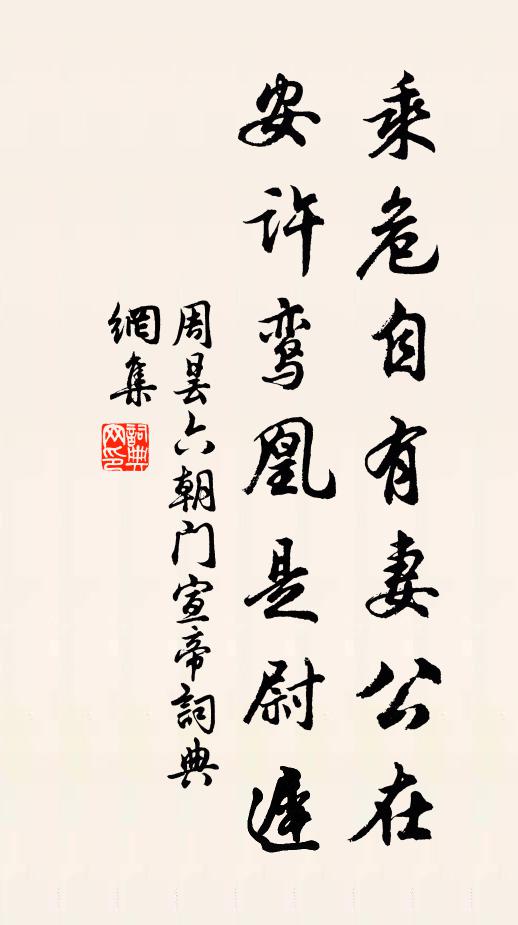 乘危自有妻公在
安许鸾凰是尉迟
周昙六朝门宣帝詞典
網集
詞典
网印